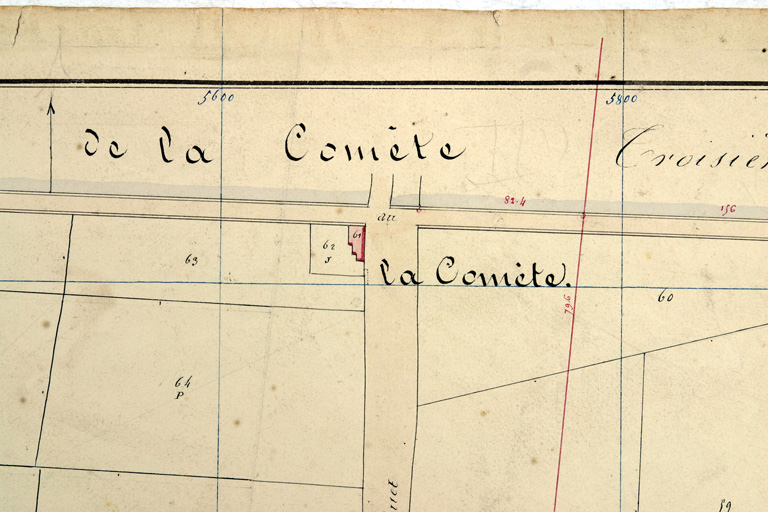 5600
5800
de la Comète
Troisièm
82.4
156
au
61
62
J
63
la Comète.
796
60
64
P
uet
59